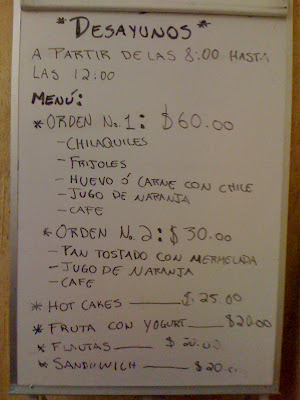 *DESAYUNOS*
A PARTIR DE LAS 8:00 HASTA
LAS 12:00
MENÚ:
* ORDEN No. 1: $60.00
- CHILAQUILES
- FRIJOLES
- HUEVO Ó CARNE CON CHILE
- JUGO DE NARANJA
- CAFE
* ORDEN No. 2: $30.00
- PAN TOSTADO CON MERMELADA
- JUGO DE NARANJA
- CAFE
* HOT CAKES — $25.00
* FRUTA CON YOGURT — $20.00
* FLAUTAS — $20.00
* SANDUWICH — $20.00